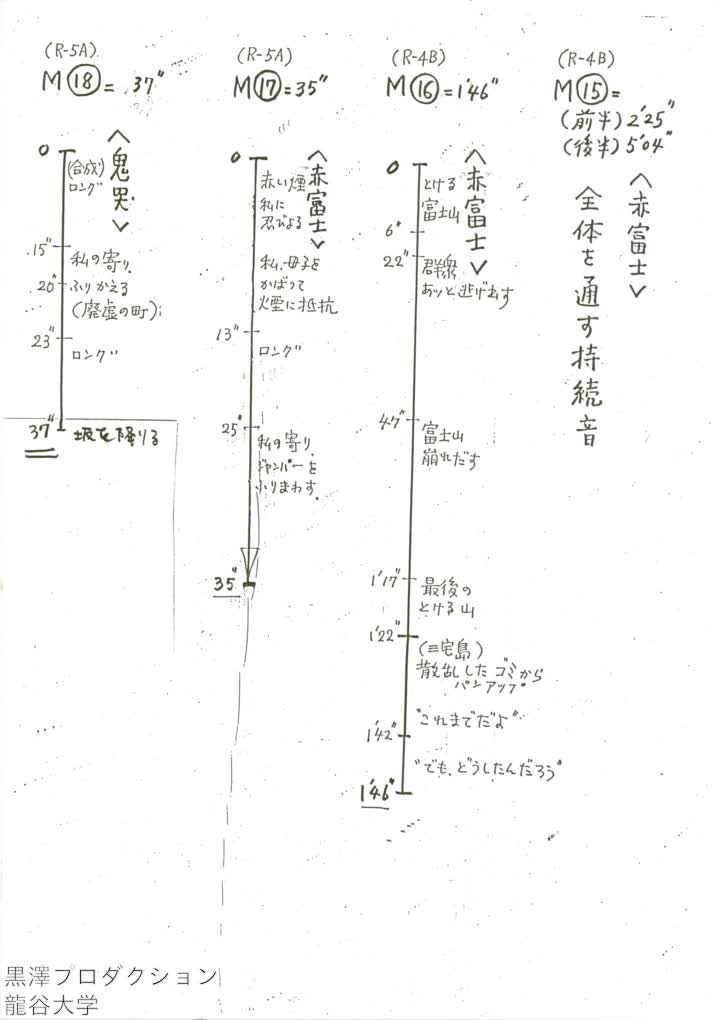 (R-4B)
M⑮=
(前半) 2'25"
(後半) 5'04"
〈赤富士〉
全体を通す持続音
(R-4B)
M⑯=1'46"
〈赤富士〉
0
とける
富士山
6"
22"
群衆
あッと逃げ出す
47"
富士山
崩れだす
1'17"
最後の
とける山
1'22"
(三宅島)
散乱したゴミから
パンアップ
"これまでだよ"
1'42"
"でも、どうしたんだろう"
1'46"
(R-5A)
M⑰=35"
〈赤富士〉
0
赤い煙
私に
忍びよる
私、母子を
かばって
煙に抵抗
13"
ロング
25"
私の寄り.
ジャンパーを
ふりまわす.
35"
(R-5A)
M⑱= 37"
〈鬼哭〉
0
(合成)
ロング
15"
私の寄り.
20"
ふりかえる
(廃虚の町)
23"
ロング
37"
坂を降りる
黒澤プロダクション
龍谷大学